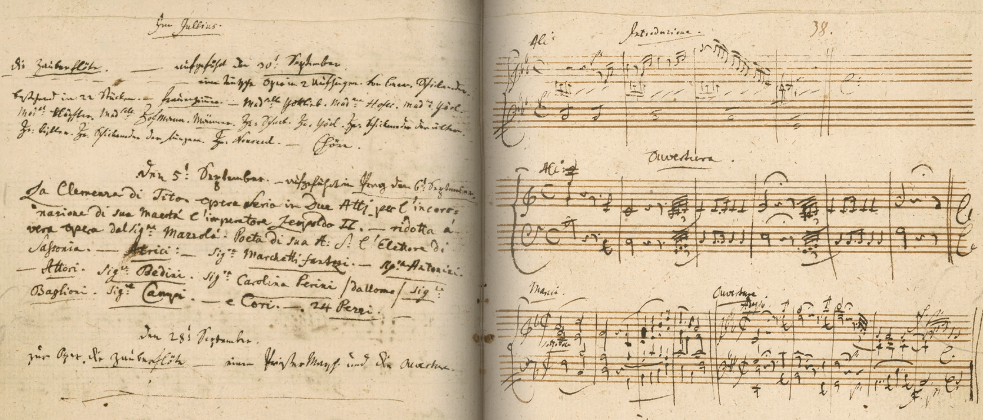 Im Jullius.
die Zauberflöte. — aufgeführt den 30t September.
eine teutsche Oper in 2 Aufzügen. von Eman. Schikaneder.
bestehend in 22 Stücken. — Frauenzimer. — Mad:selle Gottlieb. Mad:me Hofer. Mad:me Görl.
Mad:me Klöpfler. Mad:selle Hofmann. Männer. Hr: Schack. Hr: Görl. Hr: Schikaneder der ältere.
Hr: Kistler. Hr: Schikaneder der jüngere. Hr: Nouseul. — Chöre.
den 5t September. — aufgeführt in Prag den 6t September.
La Clemenza di Tito. opera seria in Due Atti. per l'incoro-
nazione di sua maestà l'imperatore Leopoldo II. — ridotta á
vera opera dal Sigre Mazzolá. Poeta di sua A: S: l'Elettore di
Sassonia. — Atrici: — Sigra Marchetti fantozi. — Sigra Antonini.
— Attori. Sigre Bedini. Sigra Carolina Perini / da uomo / Sigre
Baglioni. Sigre Campi. — e Cori. — 24 Pezzi.
den 28t September.
zur Oper. die Zauberflöte — einen Priester Marsch und die Ouverture.
38.
Allo
Introduzione.
Ouvertura.
Allo
Marcia.
Ouverture
Adagio